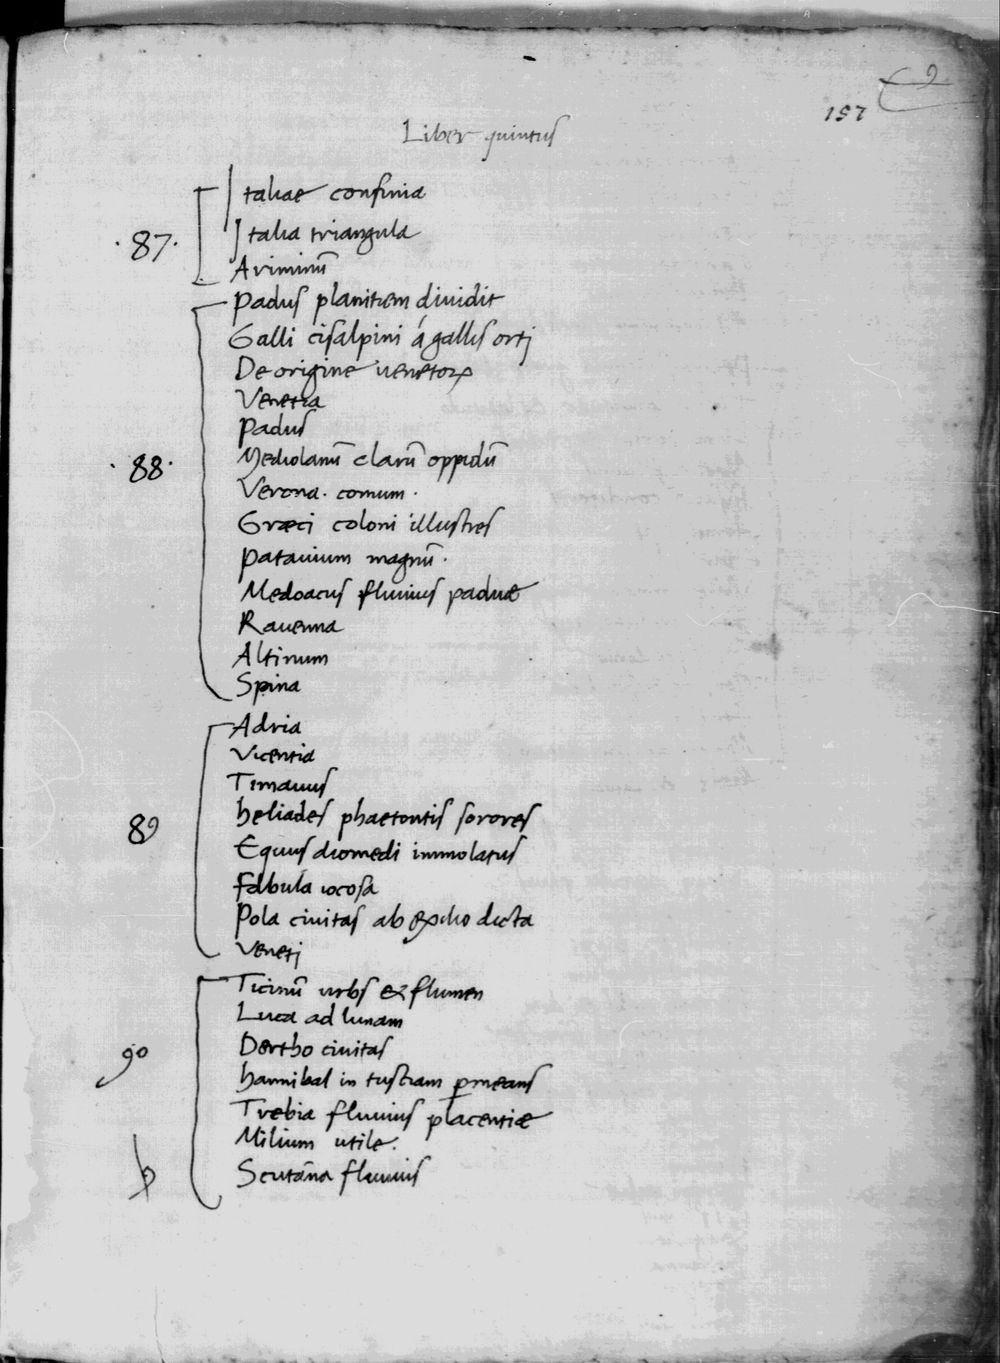 9
157
Liber quintus
Italiae confinia
·87·
Italia triangula
Ariminū
padus planitiem diuidit
Galli cisalpini á gallis ortj
De origine uenetoꝝ
Venetia
padus
Mediolanū clarū oppidū
·88·
Verona. comum.
Græci coloni illustres
patauium magnū.
Medoacus fluuius paduæ
Rauenna
Altinum
Spina
Adria
Vicentia
Timauus
heliades phaetontis sorores
89
Equus diomedi immolatus
fabula iocosa
Pola ciuitas ab exilio dicta
Venetj
Ticinū urbs & flumen
Luca ad lunam
Dertho ciuitas
90
hannibal in tusciam ꝑmeans
Trebia fluuius placentiæ
Milium utile.
Scutāna fluuius